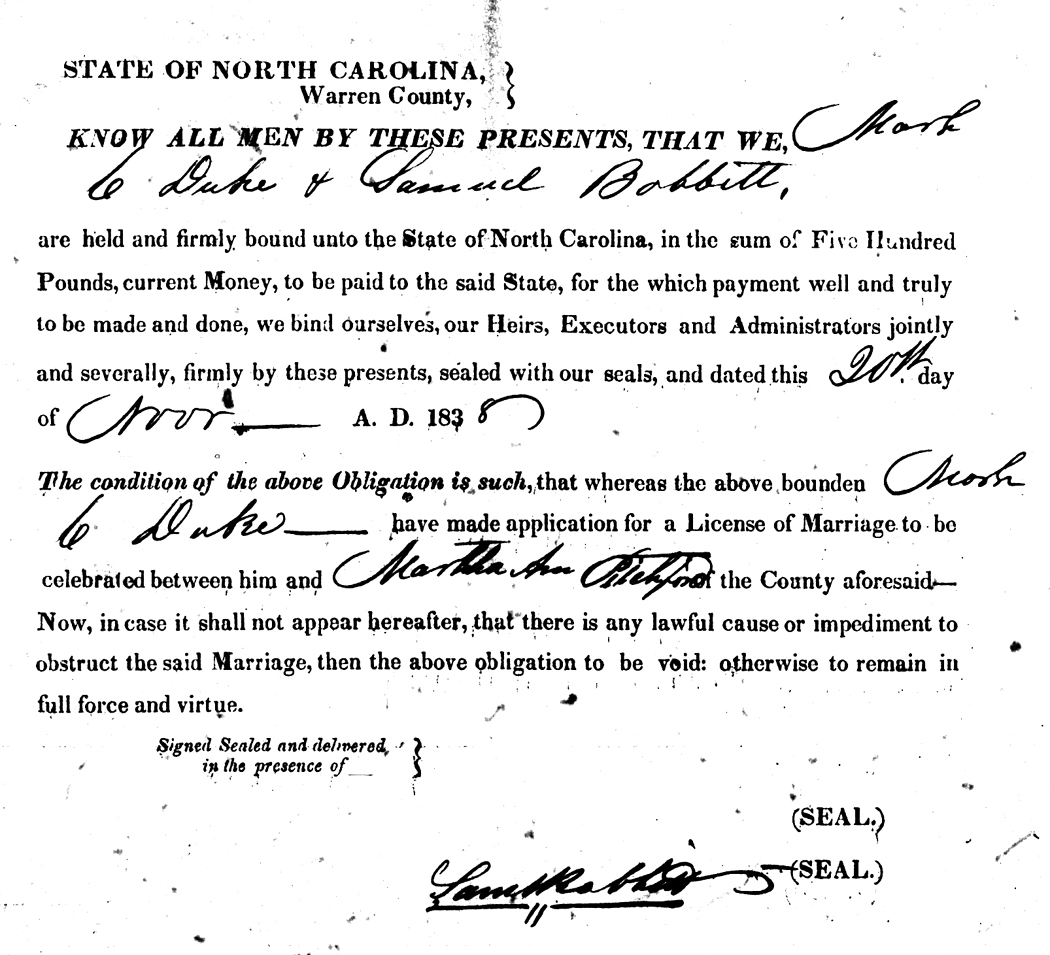 STATE OF NORTH CAROLINA,
Warren County,
KNOW ALL MEN BY THESE PRESENTS, THAT WE, Mark
C Duke & Samuel Bobbitt,
are held and firmly bound unto the State of North Carolina, in the sum of Five Hundred
Pounds, current Money, to be paid to the said State, for the which payment well and truly
to be made and done, we bind ourselves, our Heirs, Executors and Administrators jointly
and severally, firmly by these presents, sealed with our seals, and dated this 20th. day
of Novr. A. D. 183 8
The condition of the above Obligation is such, that whereas the above bounden Mark
C Duke have made application for a License of Marriage to be
celebrated between him and Martha Ann Pitchford of the County aforesaid—
Now, in case it shall not appear hereafter, that there is any lawful cause or impediment to
obstruct the said Marriage, then the above obligation to be void: otherwise to remain in
full force and virtue.
Signed Sealed and delivered,
in the presence of
(SEAL.)
Saml Bobbitt (SEAL.)